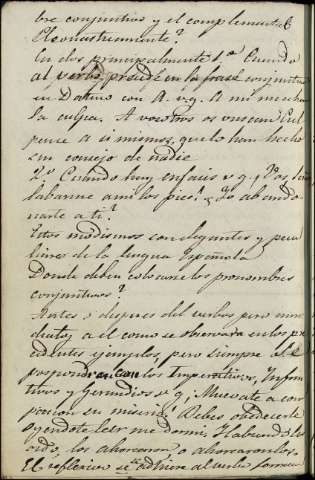 bre conjuntivo y el complemento
Pleonasticamente?
En dos, principalmente 1.ª Cuando
al verbo precede en la frase conjuntiva
en Dativo con A. v.g. A mi me echan
la culpa. A vosotros os buscan. Cul
pence a si mismos, que lo han hecho
sin consejo de nadie
2.ª Cuando hay enfasis v g
labarme a mi los pies! Yo abando
narte a ti?
Estos modismos son elegantes y pecu
liares de la lengua Española
Donde deben colocarse los pronombres
conjuntivos?
Antes ó despues del verbo pero inme
diatos a el como se observara en los pre
cedentes ejemplos, pero siempre se
pospondran con los Imperativos, Infini
tivos y Gerundios v g ¡Muevate a com
pacion su miseria! Debes obedecerle
Oyendote leer me dormi. Habiendo
los ahorcaron o ahorcaronlos.
El reflexivo se adhiere al verbo